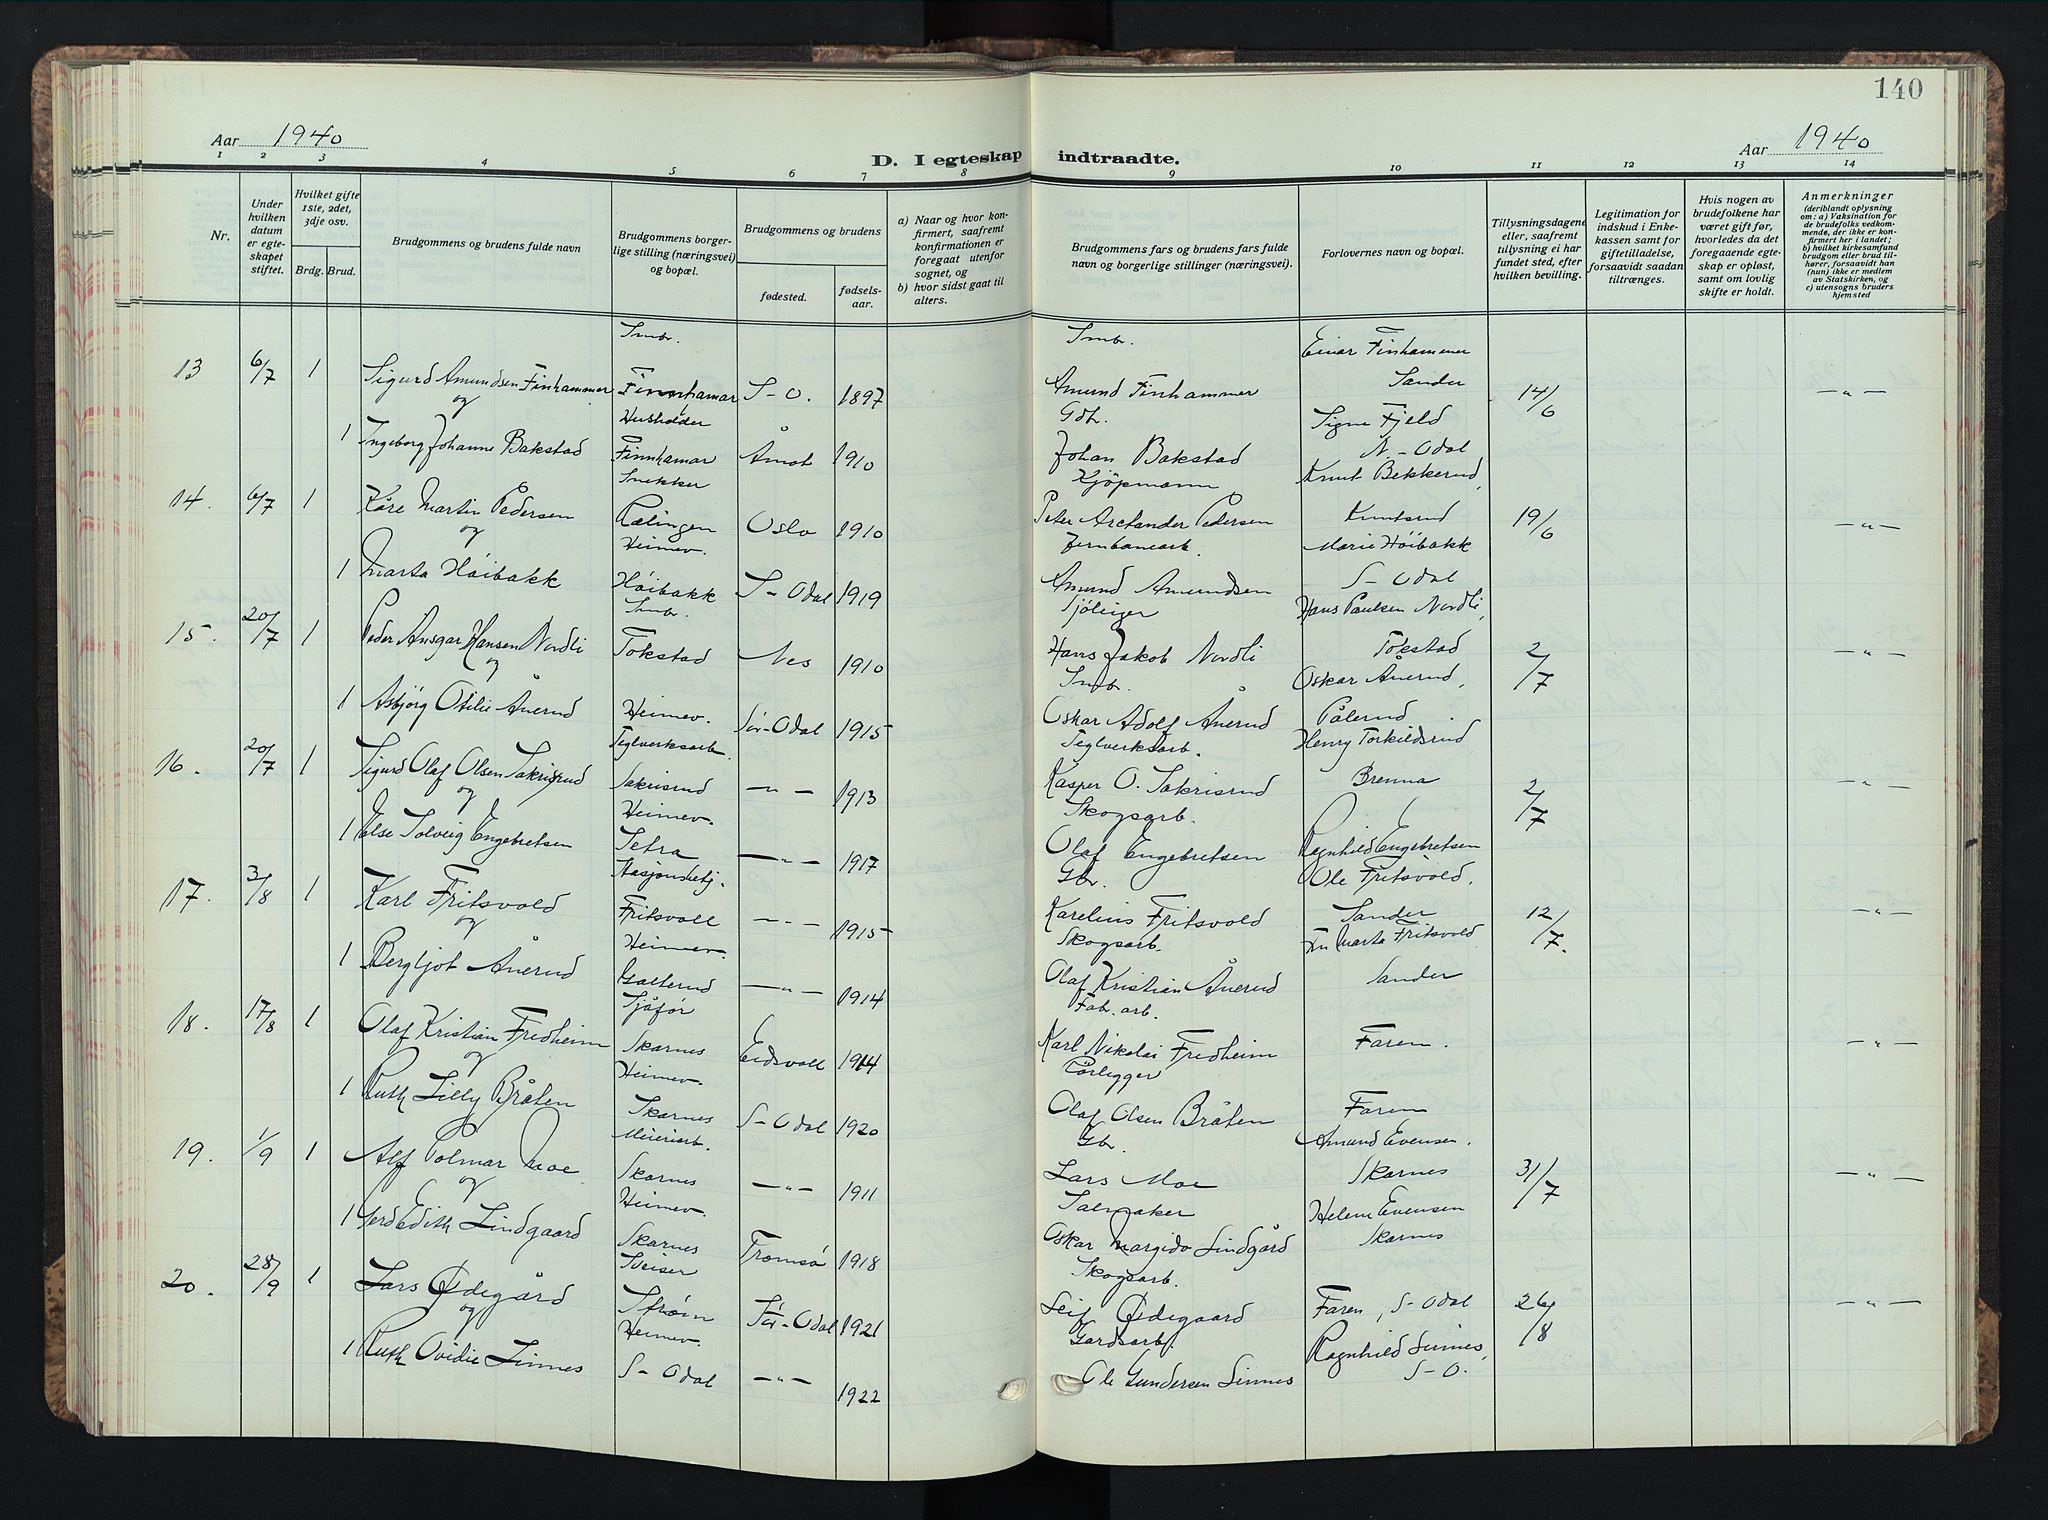 140
Aar 1940
D. I egteskap indtraadte.
Aar 1940
1 2 3 4 5 6 7 8 9 10 11 12 13 14
Nr.
Under hvilken datum er egteskapet stiftet.
Hvilket gifte 1ste, 2det, 3dje osv.
Brdg. Brud.
Brudgommens og brudens fulde navn
Brudgommens borgerlige stilling (næringsvei) og bopæl.
Brudgommens og brudens
fødested.
fødselsaar.
a) Naar og hvor konfirmert, saafremt konfirmationen er foregaat utenfor sognet, og
b) hvor sidst gaat til alters.
Brudgommens fars og brudens fars fulde navn og borgerlige stillinger (næringsvei).
Forlovernes navn og bopæl.
Tillysningsdagene eller, saafremt tillysning ei har fundet sted, efter hvilken bevilling.
Legitimation for indskud i Enkekassen samt for giftetilladelse, forsaavidt saadan tiltrænges.
Hvis nogen av brudefolkene har været gift før, hvorledes da det foregaaende egteskap er opløst, samt om lovlig skifte er holdt.
Anmerkninger
(deriblandt oplysning om: a) Vaksination for de brudefolks vedkommende, der ikke er konfirmert her i landet; b) hvilket kirkesamfund brudgom eller brud tilhører, forsaavidt han (hun) ikke er medlem av Statskirken, og c) utensogns bruders hjemsted
Smbr. Smbr. Einar Finhammer
13 6/7 1 Sigurd Amundsen Finhammer Finnhamar S-O. 1897 Amund Finhammer Sander 14/6 -"-
og Husholder Gdb. Signe Fjeld
1 Ingeborg Johanne Bakstad Finnhamar Åmot 1910 Johan Bakstad N.-Odal
Snekker Kjöpmann Knut Bekkerud,
14. 6/7 1 Kåre Martin Pedersen Rælingen Oslo 1910 Peter Arctander Pedersen Knutsrud 19/6 -"-
og Heimev. Jernbanearb. Marie Höibakk
1 Marta Höibakk Höibakk S-Odal 1919 Amund Amundsen S-Odal
Smbr. Hans Paulsen Nordli,
15. 20/7 1 Peder Ansgar Hansen Nordli Tokstad Nes 1910 Hans Jakob Nordli Tokstad 2/7 -"-
og Smbr. Oskar Ånerud,
1 Asbjörg Otilie Ånerud Heimev. Sör-Odal 1915 Oskar Adolf Ånerud Pålerud
Teglverksarb. Teglverksarb. Henry Torkildsrud
16. 20/7 1 Sigurd Olaf Olsen Sakrisrud Sakrisrud -"- 1913 Kasper O. Sakrisrud Brenna 2/7 -"-
og Heimev. Skogsarb.
1 Else Solveig Engebretsen Setra -"- 1917 Olaf Engebretsen Ragnhild Engebretsen
Stasjonsbetj. Gbr. Ole Fritsvold,
17. 3/8 1 Karl Fritsvold Fritsvoll -"- 1915 Karelius Fritsvold Sander 12/7. -"-
og Heimev. Skogsarb. Fru Marta Fritsvold
1 Bergljot Ånerud Galterud -"- 1914 Olaf Kristian Ånerud Sander
Sjåför Fab. arb.
18. 17/8 1 Olaf Kristian Fredheim Skarnes Eidsvoll 1914 Karl Nikolai Fredheim Faren. -"-
og Heimev. Rörlegger
1 Ruth Lilly Bråten Skarnes S-Odal 1920 Olaf Olsen Bråten Faren
Meieriarb. Gbr. Amund Evensen.
19. 1/9 1 Alf Polmar Moe Skarnes -"- 1911 Lars Moe Skarnes 31/7 -"-
og Heimev. Salmaker Helene Evensen
1 Gerd Edith Lindgaard Skarnes Tromsö 1918 Oskar Margido Lindgård Skarnes
Sveiser Skogsarb.
20. 28/9 1 Lars Ødegård Ström Sör-Odal 1921 Leif Ødegaard Faren, S-Odal 26/8 -"-
og Heimev. Gardsarb. Ragnhild Linnes,
1 Ruth Ovidie Linnes S-Odal -"- 1922 Ole Gundersen Linnes S-O.